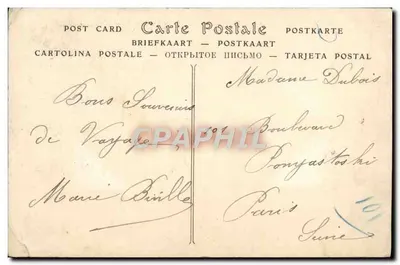 POST CARD Carte Postale POSTKARTE
BRIEFKAART — POSTKAART
CARTOLINA POSTALE — ОТКРЫТОЕ ПИСЬМО — TARJETA POSTAL
Bons Souvenirs
de Voyage
Marie
Madame Dubois
Boulevard
Poniatoski
Paris
Seine
101
CPAPHIL.com